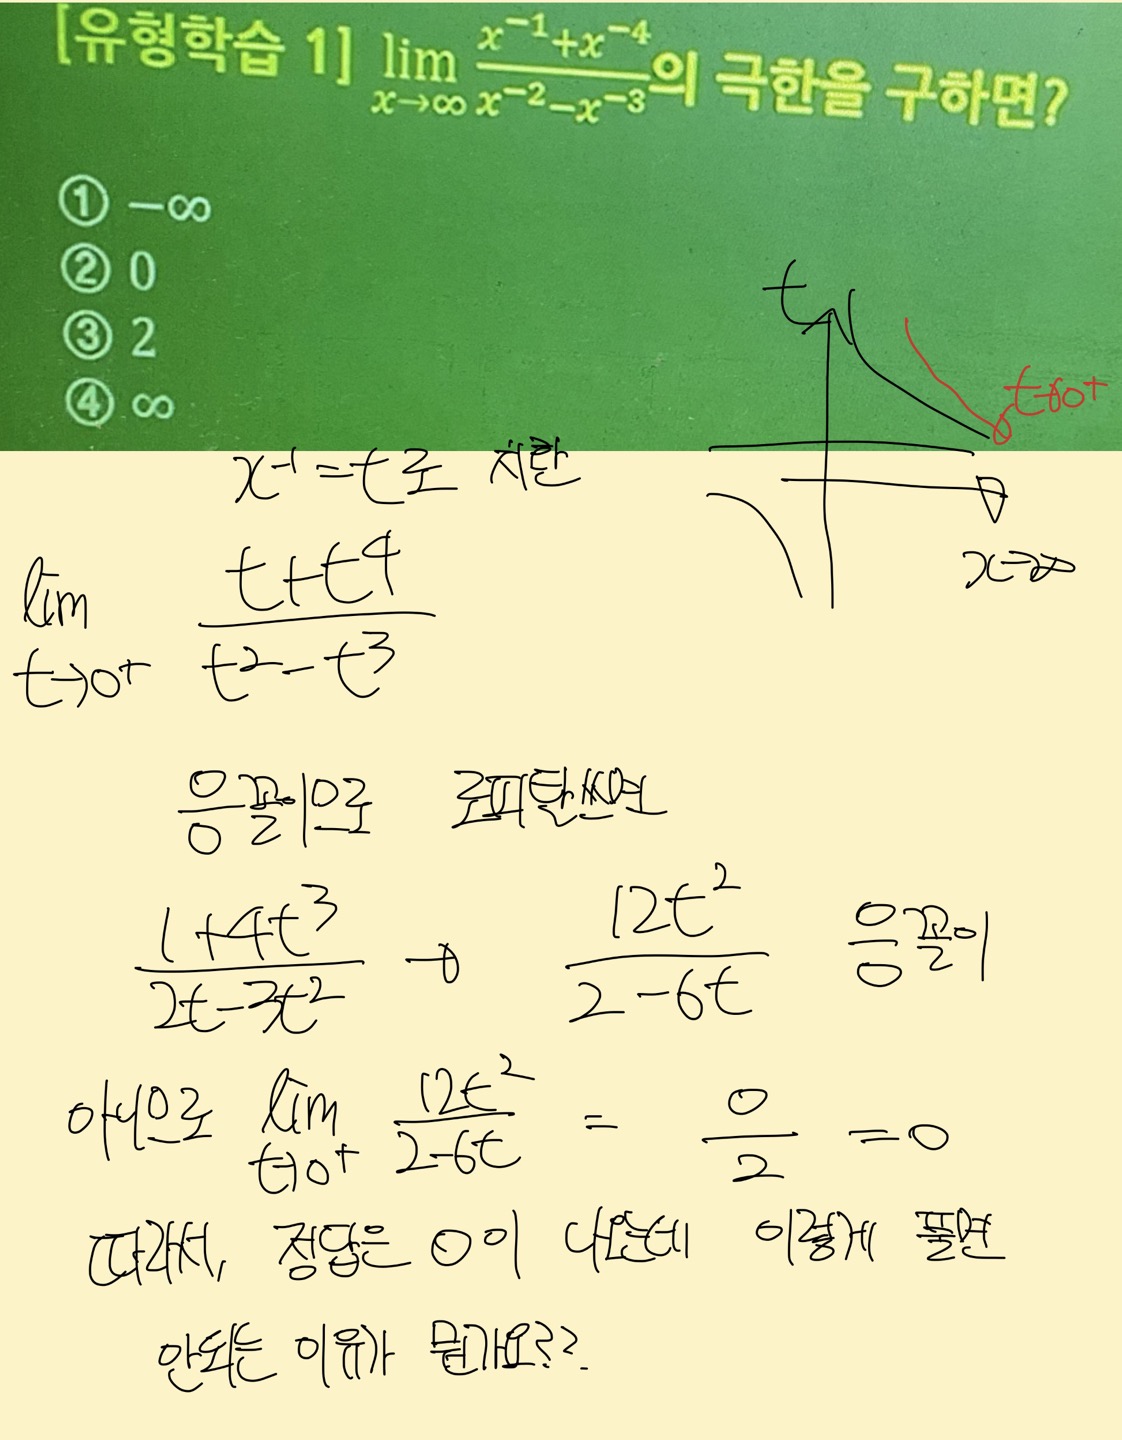 [유형학습 1] lim x→∞ (x⁻¹+x⁻⁴)/(x⁻²−x⁻³)의 극한을 구하면?
① −∞
② 0
③ 2
④ ∞
t
t→0+
x→∞
x⁻¹=t로 치환
lim t→0+ (t+t⁴)/(t²−t³)
0/0꼴이므로 로피탈쓰면
(1+4t³)/(2t−3t²) → 12t²/(2−6t) 0/0꼴이
아니므로 lim t→0+ 12t²/(2−6t) = 0/2 =0
따라서, 정답은 0이 나오는데 이렇게 풀면
안되는 이유가 뭔가요??.